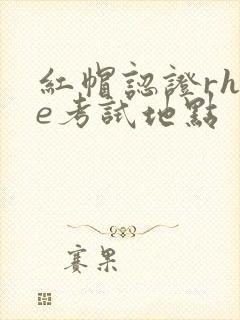 紅帽認證rh
e考試地點
赛果